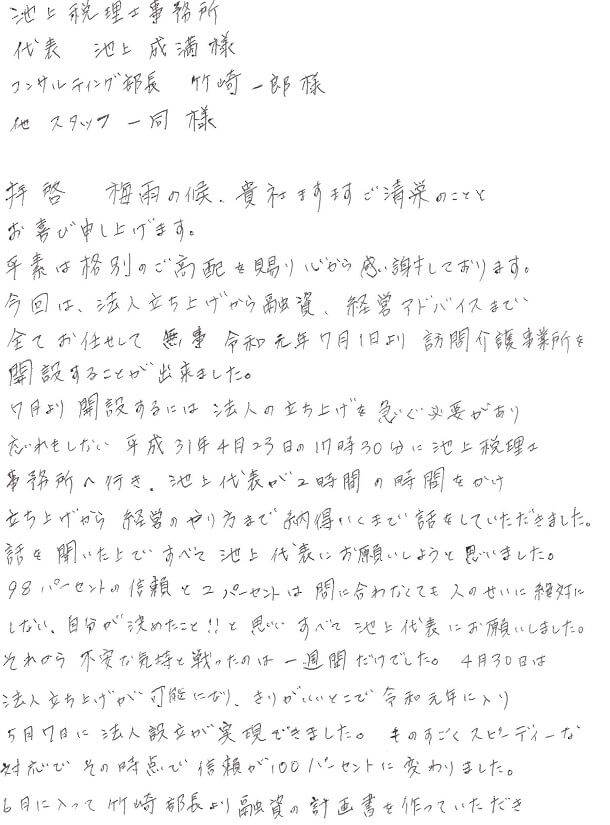 池上税理士事務所
代表 池上成満様
コンサルティング部長 竹崎一郎様
他スタッフ一同様
拝啓 梅雨の候、貴社ますますご清栄のことと
お喜び申し上げます。
平素は格別のご高配を賜り心から感謝しております。
今回は、法人立ち上げから融資、経営アドバイスまで
全てお任せして無事令和元年7月1日より訪問介護事業所を
開設することが出来ました。
7月より開設するには法人の立ち上げを急ぐ必要があり
忘れもしない平成31年4月23日の17時30分に池上税理士
事務所へ行き、池上代表が2時間の時間をかけ
立ち上げから経営のやり方まで納得いくまで話をしていただきました。
話を聞いた上ですべて池上代表にお願いしようと思いました。
98パーセントの信頼と2パーセントは間に合わなくても人のせいに絶対に
しない、自分が決めたこと!!と思いすべて池上代表にお願いしました。
それから不安な気持と戦ったのは一週間だけでした。4月30日は
法人立ち上げが可能になり、きりがいいとこで令和元年に入り
5月7日に法人設立が実現できました。ものすごくスピーディーな
対応でその時点で信頼が100パーセントに変わりました。
6月に入って竹崎部長より融資の計画書を作っていただき